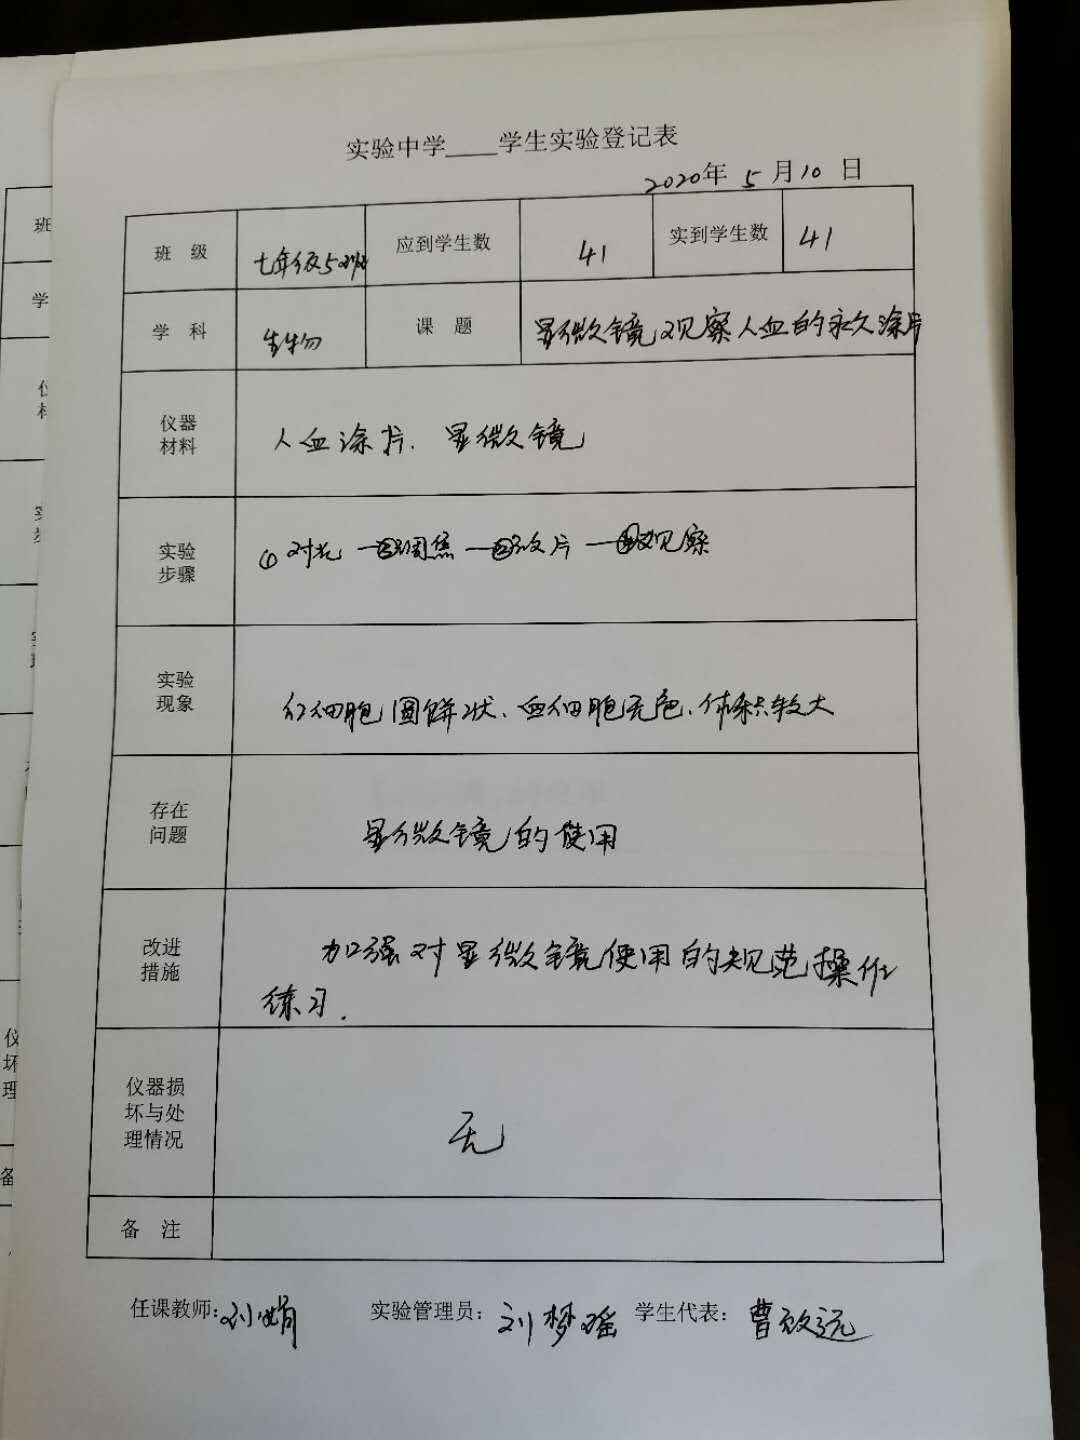 实验中学____学生实验登记表
2020年 5 月10 日
班 级 七年级5班 应到学生数 41 实到学生数 41
学 科 生物 课 题 显微镜观察人血的永久涂片
仪器
材料
人血涂片、显微镜
实验
步骤
①对光—②调焦—③放片—④观察
实验
现象
红细胞圆饼状、血细胞无色、体积较大
存在
问题
显微镜的使用
改进
措施
加强对显微镜使用的规范操作
练习.
仪器损
坏与处
理情况
无
备 注
任课教师:刘娟 实验管理员:刘梦瑶 学生代表:曹效远
班
学
仪
坏
理
备